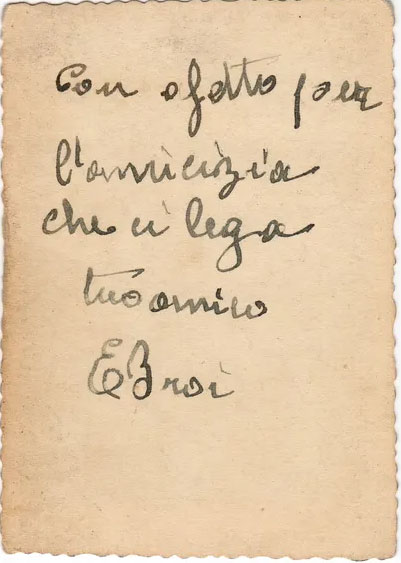 Con afetto per
l'amicizia
che ci lega
tuo amico